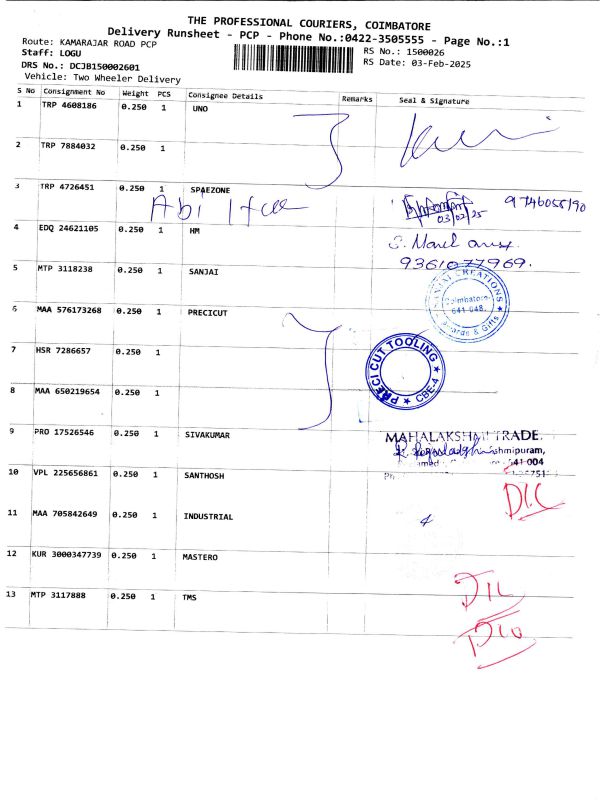 THE PROFESSIONAL COURIERS, COIMBATORE
Delivery Runsheet - PCP - Phone No.:0422-3505555 - Page No.:1
Route: KAMARAJAR ROAD PCP
RS No.: 1500026
Staff: LOGU
RS Date: 03-Feb-2025
DRS No.: DCJB150002601
Vehicle: Two Wheeler Delivery
S No Consignment No Weight PCS Consignee Details Remarks Seal & Signature
1 TRP 4608186 0.250 1 UNO
2 TRP 7884032 0.250 1
3 TRP 4726451 0.250 1 SPAEZONE
Abi 9746055190
03/02/25
4 EDQ 24621105 0.250 1 HM
9361077969.
5 MTP 3118238 0.250 1 SANJAI
CREATIONS
Coimbatore
641 048.
Awards & Gifts
6 MAA 576173268 0.250 1 PRECICUT
7 HSR 7286657 0.250 1
PRECI CUT TOOLING
CBE-4
8 MAA 650219654 0.250 1
9 PRO 17526546 0.250 1 SIVAKUMAR
MAHALAKSHMI TRADE
641 004
10 VPL 225656861 0.250 1 SANTHOSH
11 MAA 705842649 0.250 1 INDUSTRIAL
12 KUR 3000347739 0.250 1 MASTERO
13 MTP 3117888 0.250 1 TMS